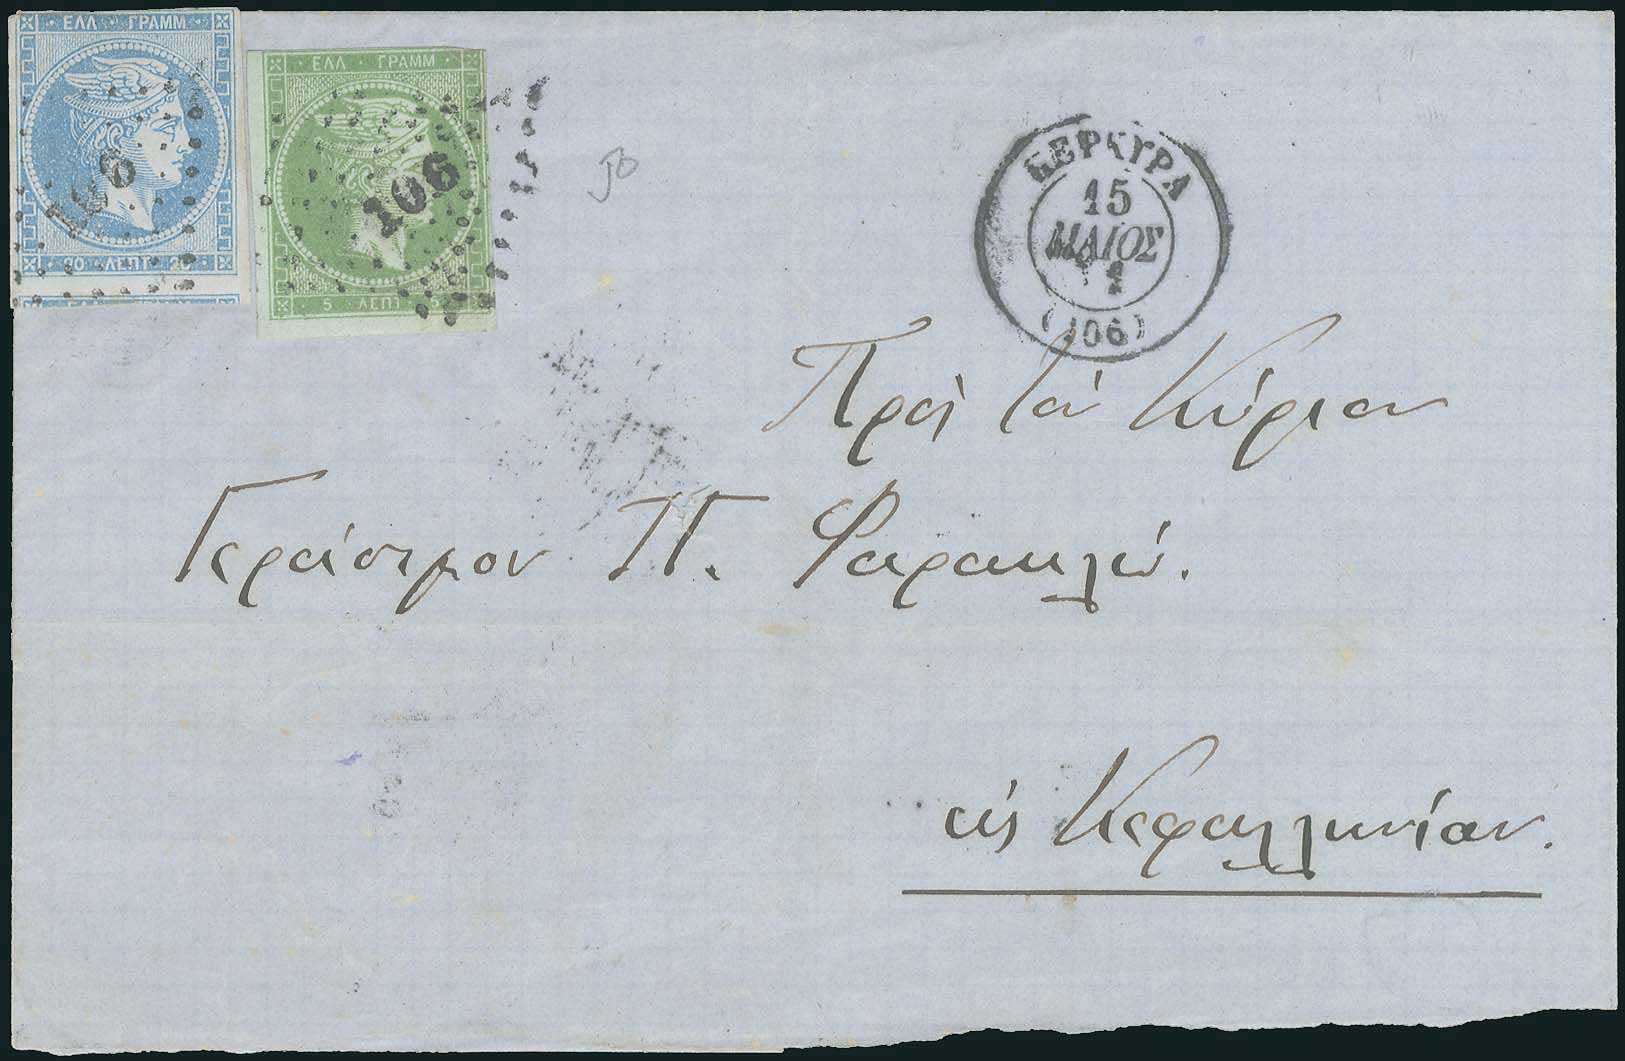 ΕΛΛ ΓΡΑΜΜ
20 ΛΕΠΤ 20
ΕΛΛ ΓΡΑΜΜ
106
5 ΛΕΠΤ 5
ΚΕΡΚΥΡΑ
15
ΜΑΙΟΣ
(106)
Πρὸς τὸν Κύριον
Γεράσιμον Π. Φαρακλόν.
εἰς Κεφαλληνίαν.